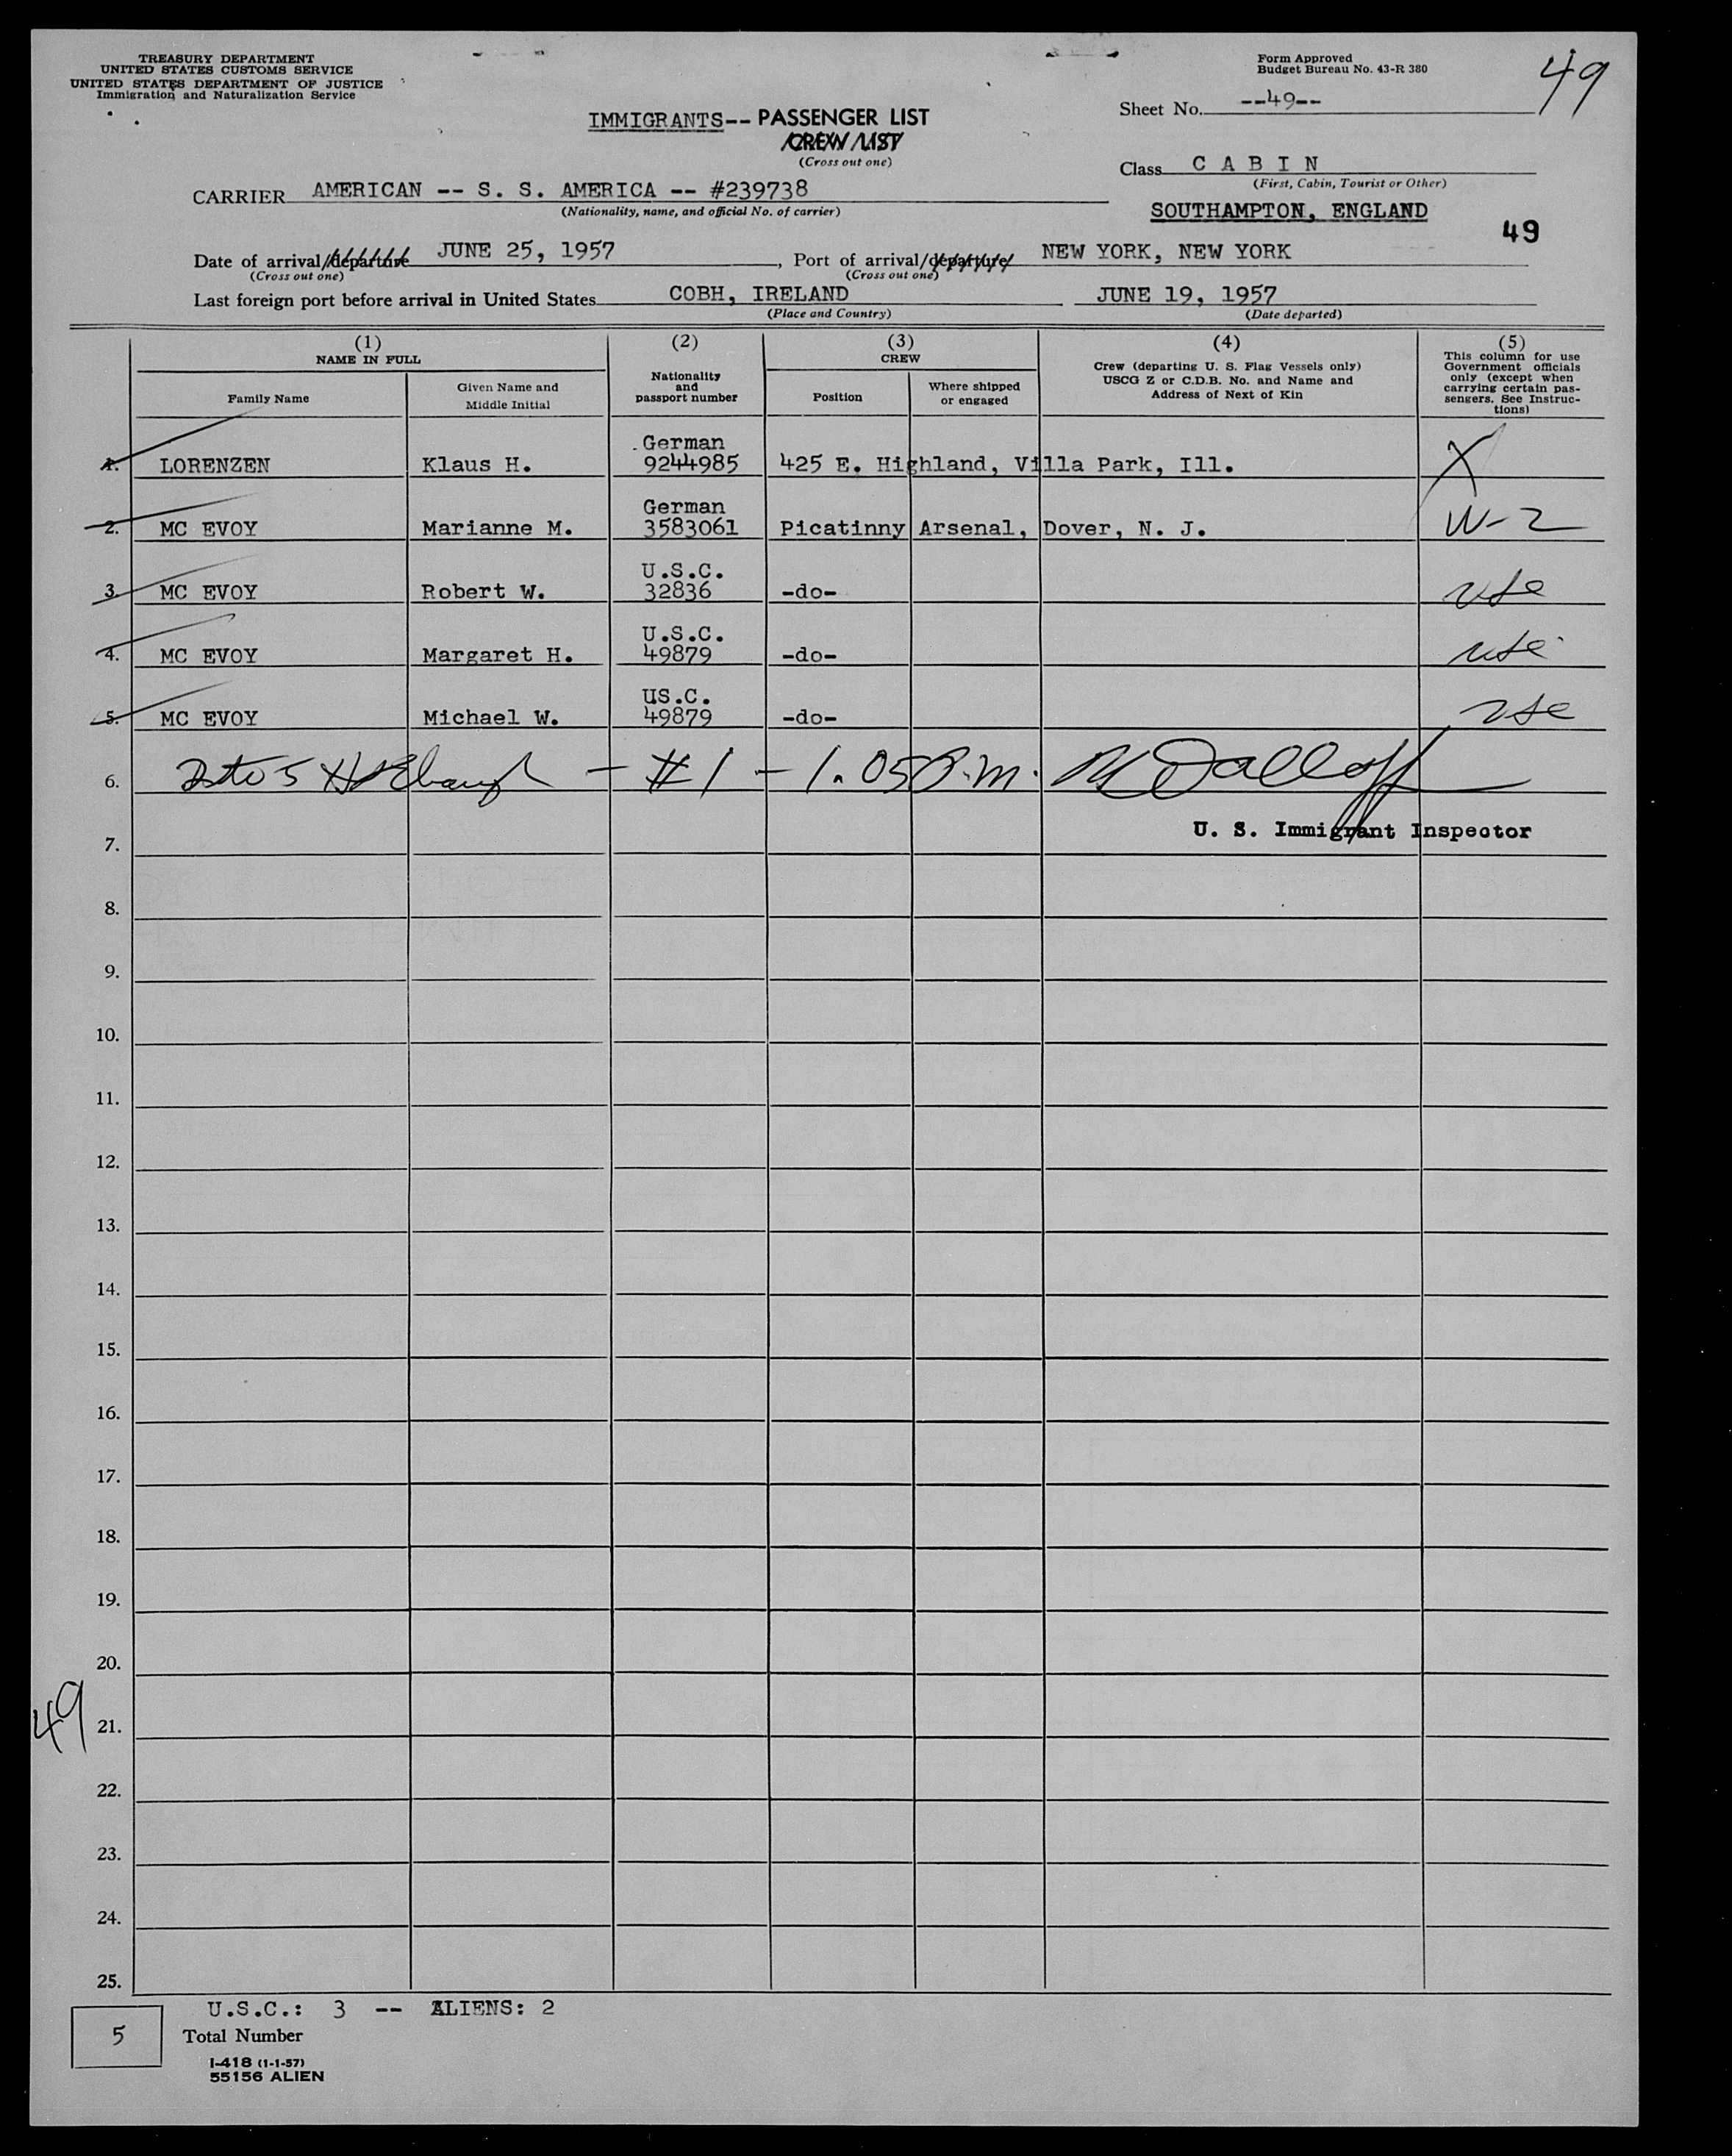 TREASURY DEPARTMENT
UNITED STATES CUSTOMS SERVICE
UNITED STATES DEPARTMENT OF JUSTICE
Immigration and Naturalization Service
Form Approved
Budget Bureau No. 43-R 380
49
Sheet No. --49--
IMMIGRANTS-- PASSENGER LIST
CREW LIST
(Cross out one)
Class C A B I N
(First, Cabin, Tourist or Other)
CARRIER AMERICAN -- S. S. AMERICA -- #239738
(Nationality, name, and official No. of carrier)
SOUTHAMPTON, ENGLAND
49
Date of arrival/departure JUNE 25, 1957, Port of arrival/departure NEW YORK, NEW YORK
(Cross out one) (Cross out one)
Last foreign port before arrival in United States COBH, IRELAND JUNE 19, 1957
(Place and Country) (Date departed)
(1) (2) (3) (4) (5)
NAME IN FULL
Family Name
Given Name and
Middle Initial
Nationality
and
passport number
CREW
Position
Where shipped
or engaged
Crew (departing U. S. Flag Vessels only)
USCG Z or C.D.B. No. and Name and
Address of Next of Kin
This column for use
Government officials
only (except when
carrying certain pas-
sengers. See Instruc-
tions)
German
1. LORENZEN Klaus H. 9244985 425 E. Highland, Villa Park, Ill. X
German
2. MC EVOY Marianne M. 3583061 Picatinny Arsenal, Dover, N. J. W-2
U.S.C.
3. MC EVOY Robert W. 32836 -do- usc
U.S.C.
4. MC EVOY Margaret H. 49879 -do- usc
US.C.
5. MC EVOY Michael W. 49879 -do- usc
6. 2 to 5 - #1 - 1.05 P.m.
U. S. Immigrant Inspector
7.
8.
9.
10.
11.
12.
13.
14.
15.
16.
17.
18.
19.
20.
49
21.
22.
23.
24.
25.
U.S.C.: 3 -- ALIENS: 2
5 Total Number
I-418 (1-1-57)
55156 ALIEN